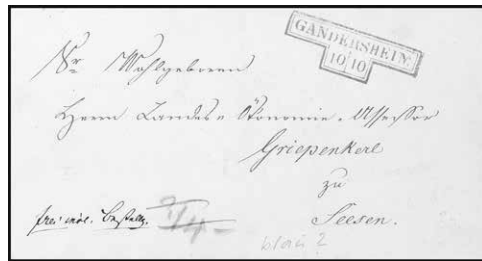 GANDERSHEIM
10/10
Sr. Wohlgeboren
Herrn Landes-Ökonomie-Assessor
Griepenkerl
zu
Seesen.
frei incl. Bestellg.
blau 2